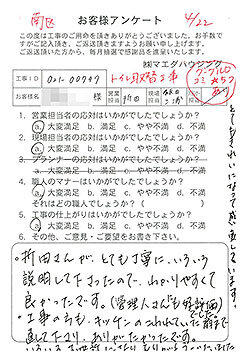 南区
お客様アンケート
4/22
この度は工事のご用命を頂きありがとうございました。お手数で
すがご記入頂き、ご返送頂きますようお願い申し上げます。
ご返送頂いた方から、毎月抽選で感謝品を進呈いたします。
㈱マエダハウジング
工事ID
001-00999
トイレ取替工事
お客様名
様
営業
折田
現場
1. 営業担当者の応対はいかがでしたでしょうか?
a. 大変満足 b. 満足 c. やや不満 d. 不満
2. 現場担当者の応対はいかがでしたでしょうか?
a. 大変満足 b. 満足 c. やや不満 d. 不満
3. プランナーの応対はいかがでしたでしょうか?
a. 大変満足 b. 満足 c. やや不満 d. 不満
4. 職人のマナーはいかがでしたでしょうか?
a. 大変満足 b. 満足 c. やや不満 d. 不満
それはどの職人でしょう?(
5. 工事の仕上がりはいかがでしたでしょうか?
a. 大変満足 b. 満足 c. やや不満 d. 不満
6. その他、ご意見・ご要望をお書き下さい。
とてもきれいになって感謝しています。
・折田さんが、とても丁寧に、いろいろ
説明して下さったので、わかりやすくて
良かったです。(管理人さんも好評価
でした。)
・工事の方も、キッチンの
直して下さり、ありがたかったです。